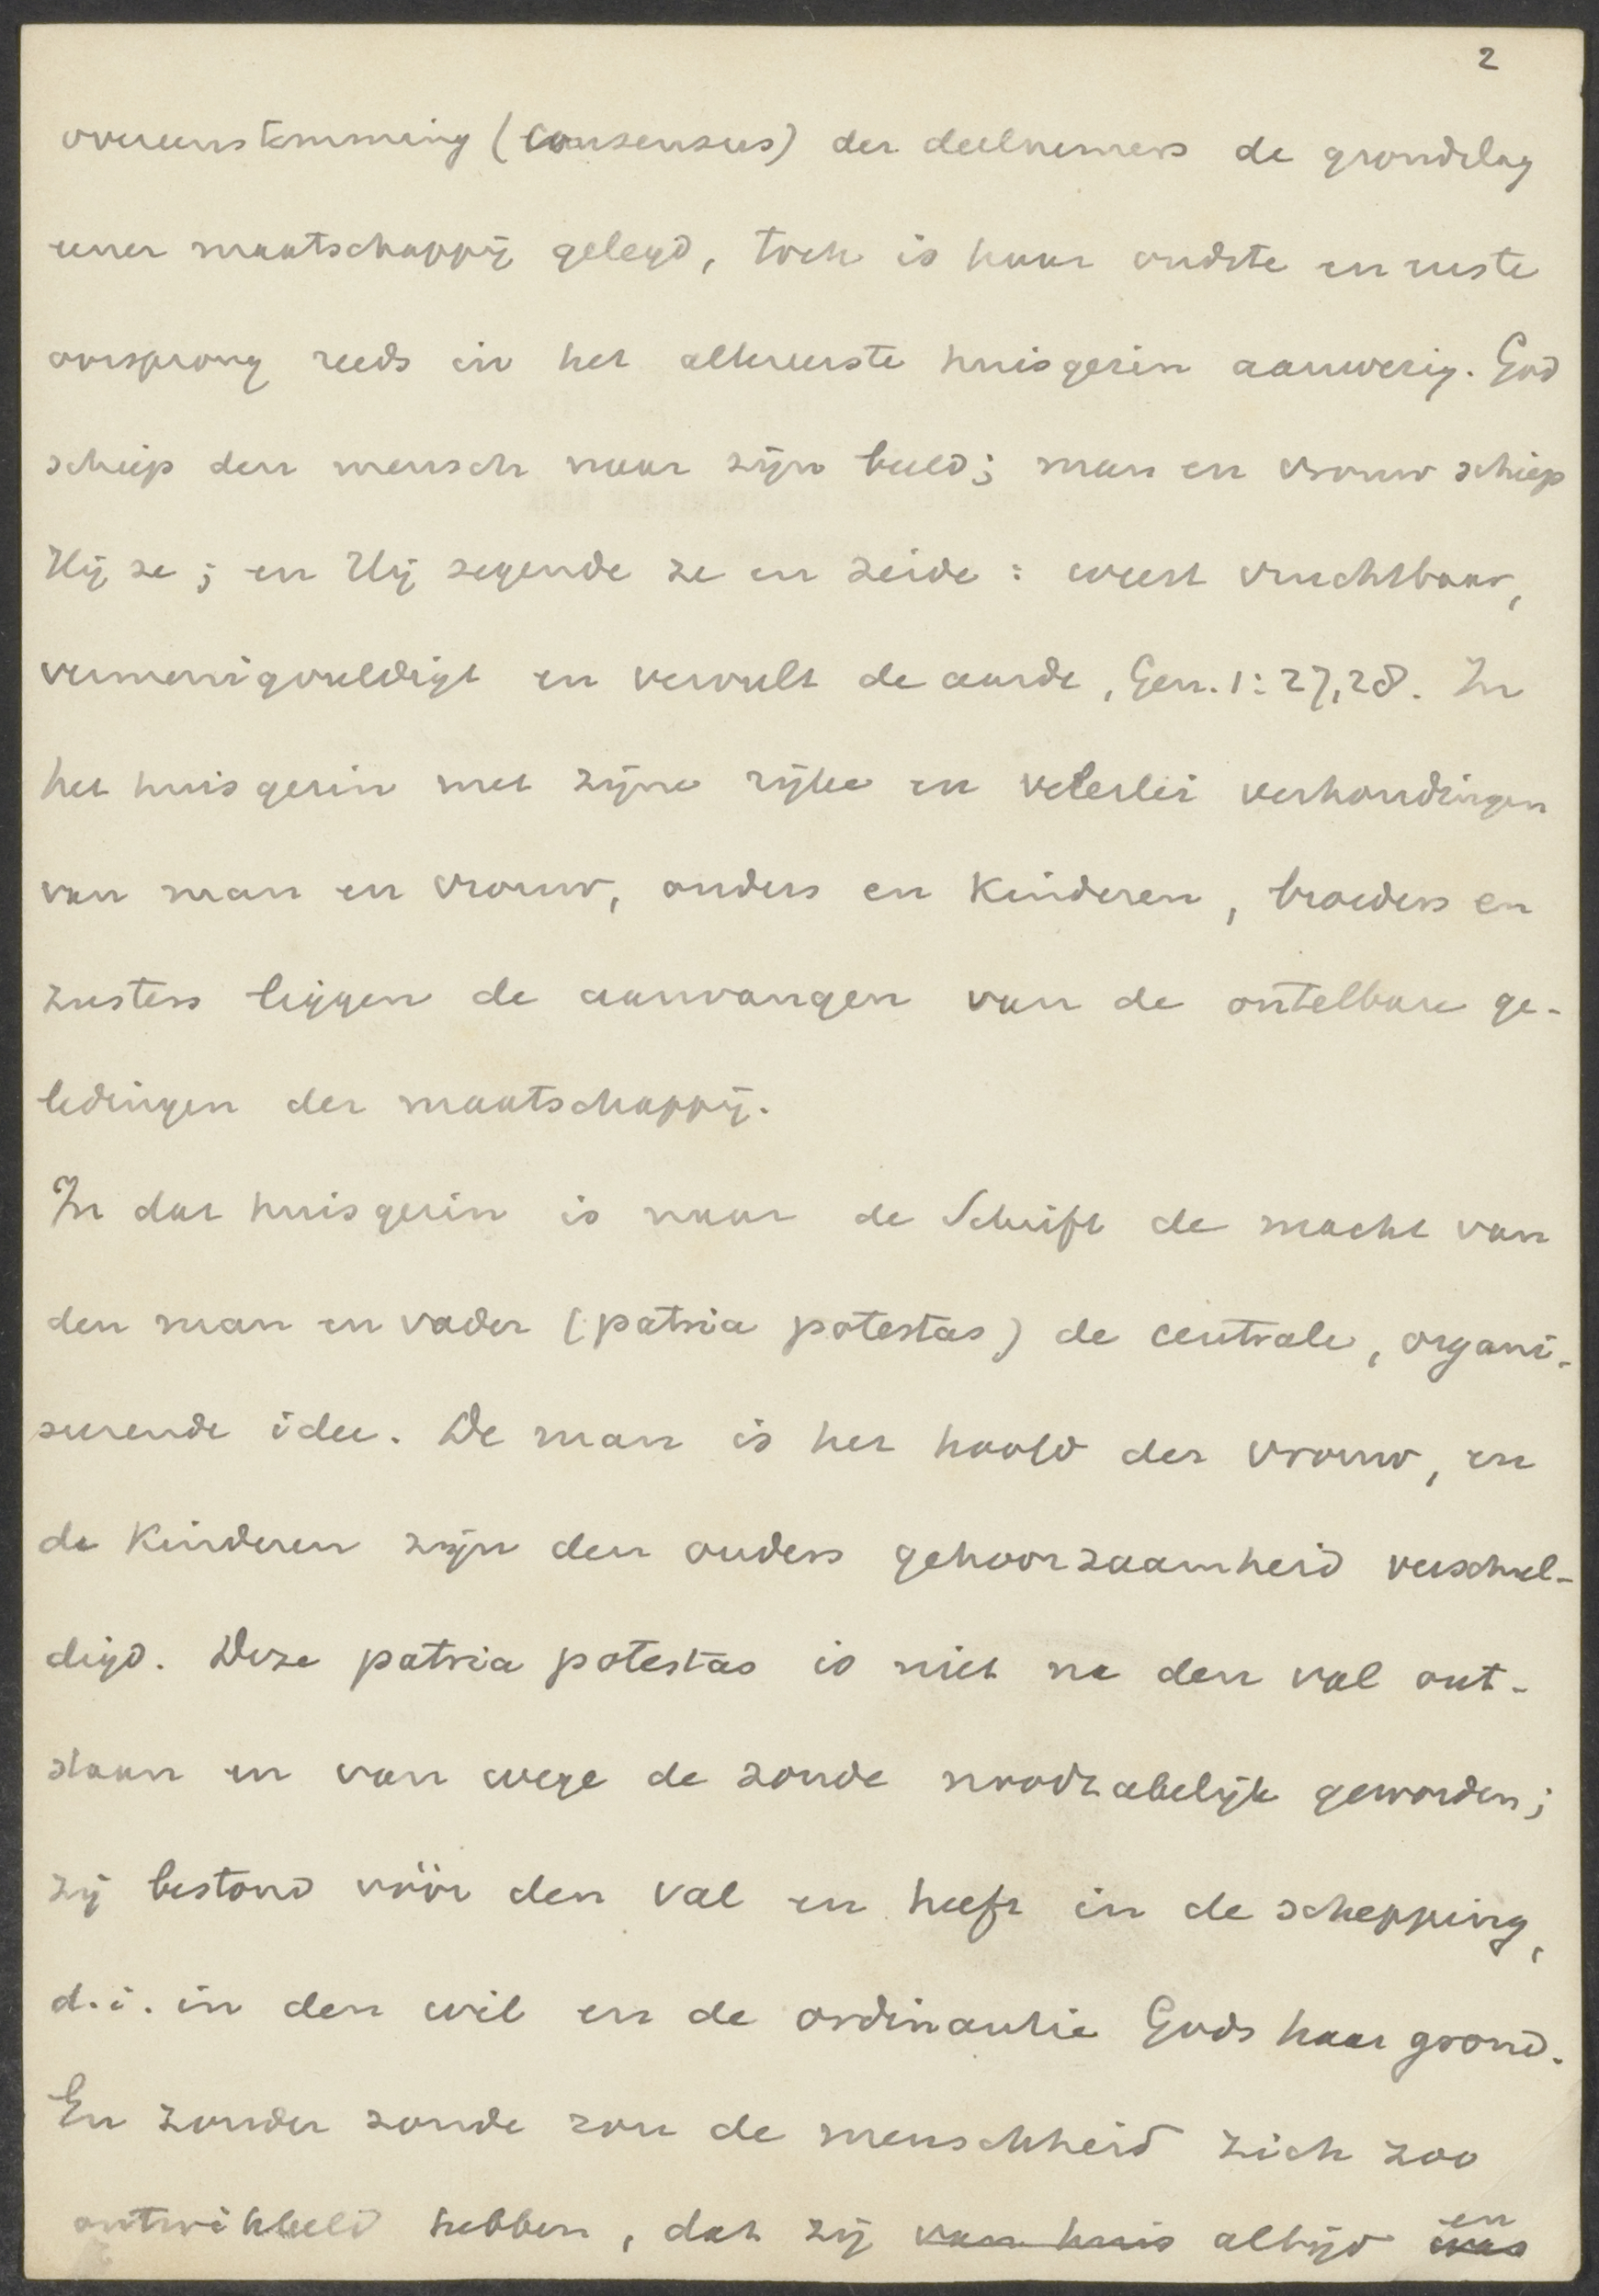 2
overeenstemming (consensus) der deelnemers de grondslag
eener maatschappij gelegd, toch is haar oudste en eerste
oorsprong reeds in het allereerste huisgezin aanwezig. God
schiep den mensch naar zijn beeld; man en vrouw schiep
Hij ze; en Hij zegende ze en zeide: weest vruchtbaar,
vermenigvuldigt en vervult de aarde, Gen. 1:27,28. In
het huisgezin met zijne rijke en velerlei verhoudingen
van man en vrouw, ouders en kinderen, broeders en
zusters liggen de aanvangen van de ontelbare ge-
ledingen der maatschappij.
In dat huisgezin is naar de Schrift de macht van
den man en vader (patria potestas) de centrale, organi-
seerende idee. De man is het hoofd der vrouw, en
de kinderen zijn den ouders gehoorzaamheid verschul-
digd. Deze patria potestas is niet na den val ont-
staan en van wege de zonde noodzakelijk geworden;
zij bestond vóór den val en heeft in de schepping,
d.i. in den wil en de ordinantie Gods haar grond.
En zonder zonde zou de menschheid zich zoo
ontwikkeld hebben, dat zij van huis altijd en was